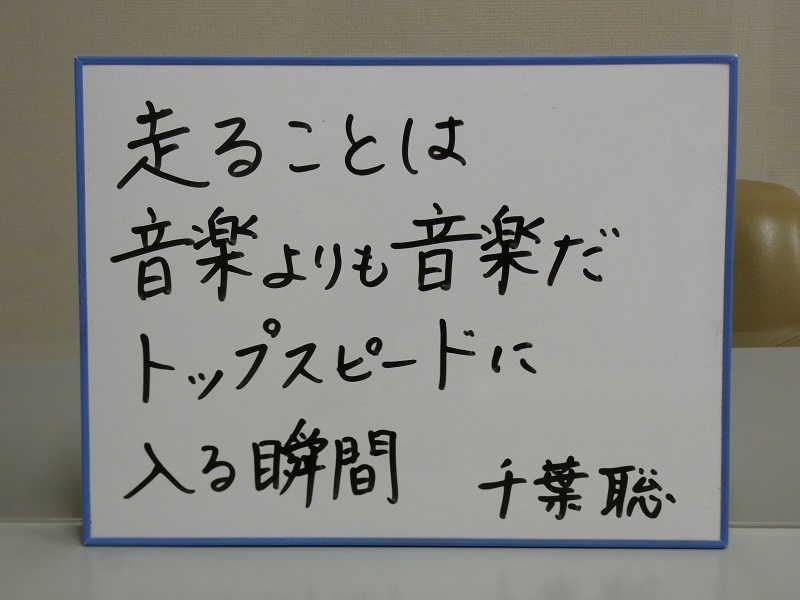 走ることは
音楽よりも音楽だ
トップスピードに
入る瞬間
千葉聡